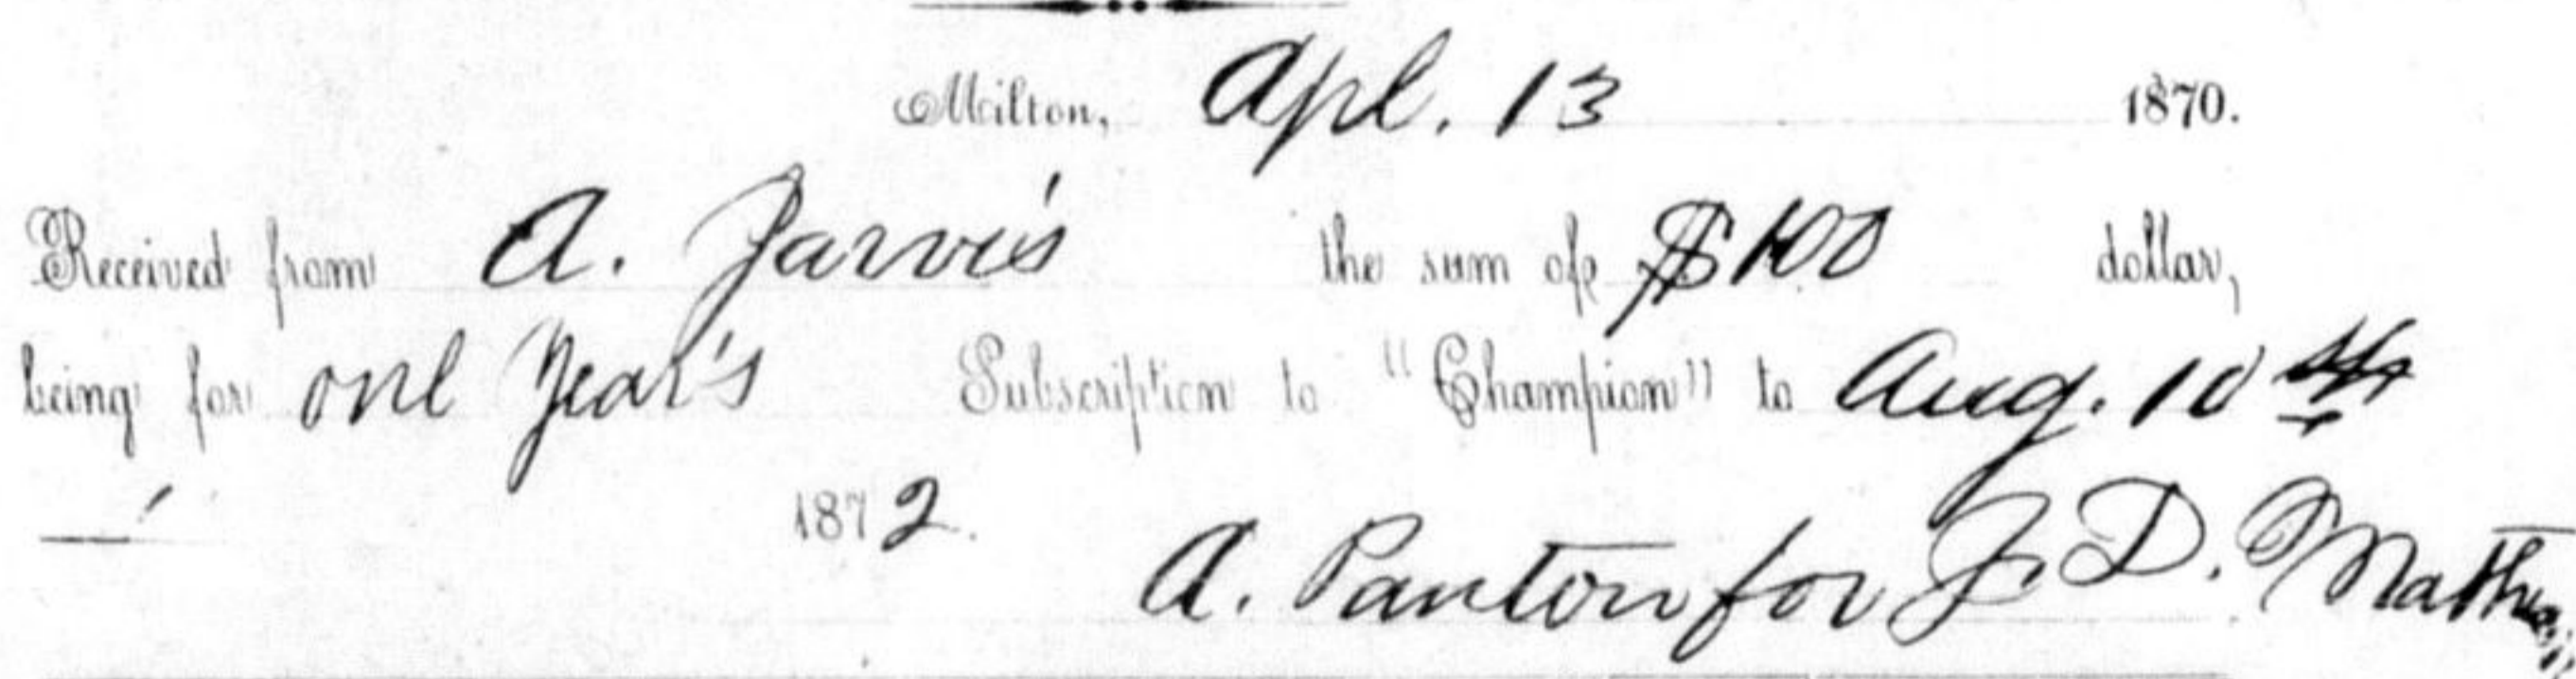 Milton, Apl. 13 1870.
Received from A. Jarvis the sum of $100 dollar,
being for one Year's Subscription to "Champion" to Aug. 10th
1872.
A. Panton for J. D. Mathews